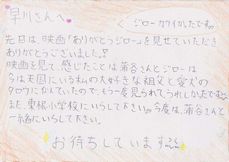 早川さんへ
ジローカワイかったです。
先日は映画「ありがとうジロー」を見せていただき
ありがとうございました!
映画を見て感じたことは菊谷さんとジローは
今は天国にいる私の大好きな祖父と愛犬の
タロウににていたので、もう一度見られてうれしかったです。
また、東根小学校にいらして下さい。今度は、菊谷さんと
一緒にいらして下さい。
お待ちしています